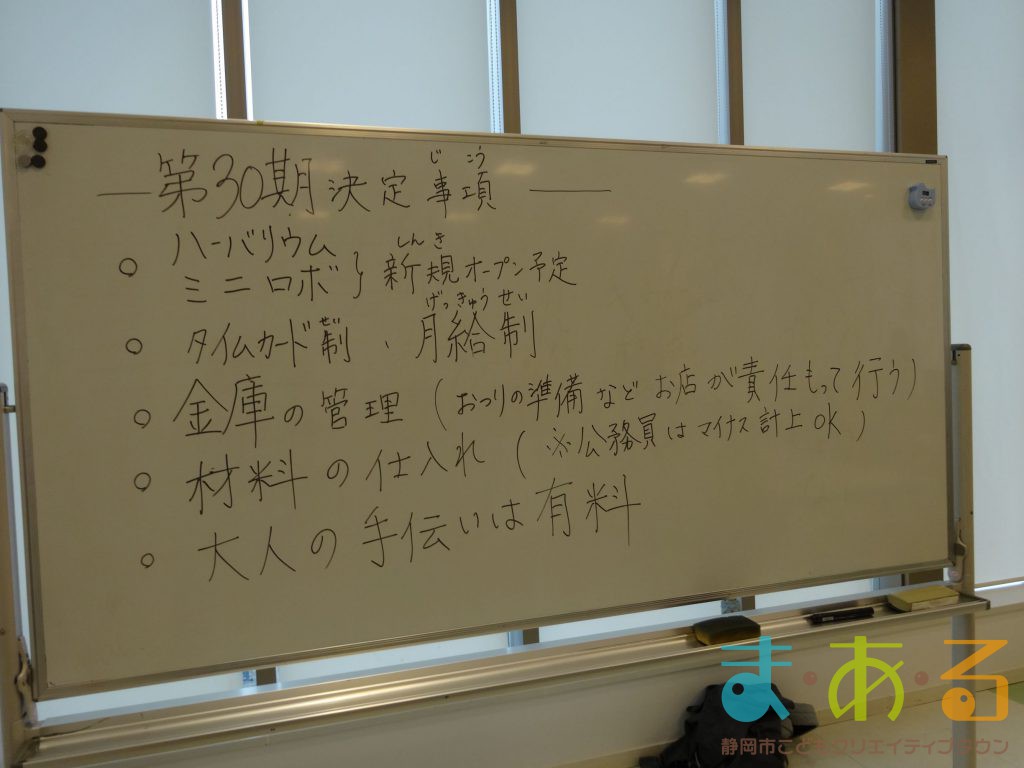 じこう
— 第30期決定事項 —
○ ハーバリウム
しんき
ミニロボ } 新規オープン予定
ぜい げっきゅうせい
○ タイムカード制、月給制
○ 金庫の管理 (おつりの準備などお店が責任もって行う)
○ 材料の仕入れ (※公務員はマイナス計上OK)
○ 大人の手伝いは有料
ま・あ・る
静岡市こどもクリエイティブタウン